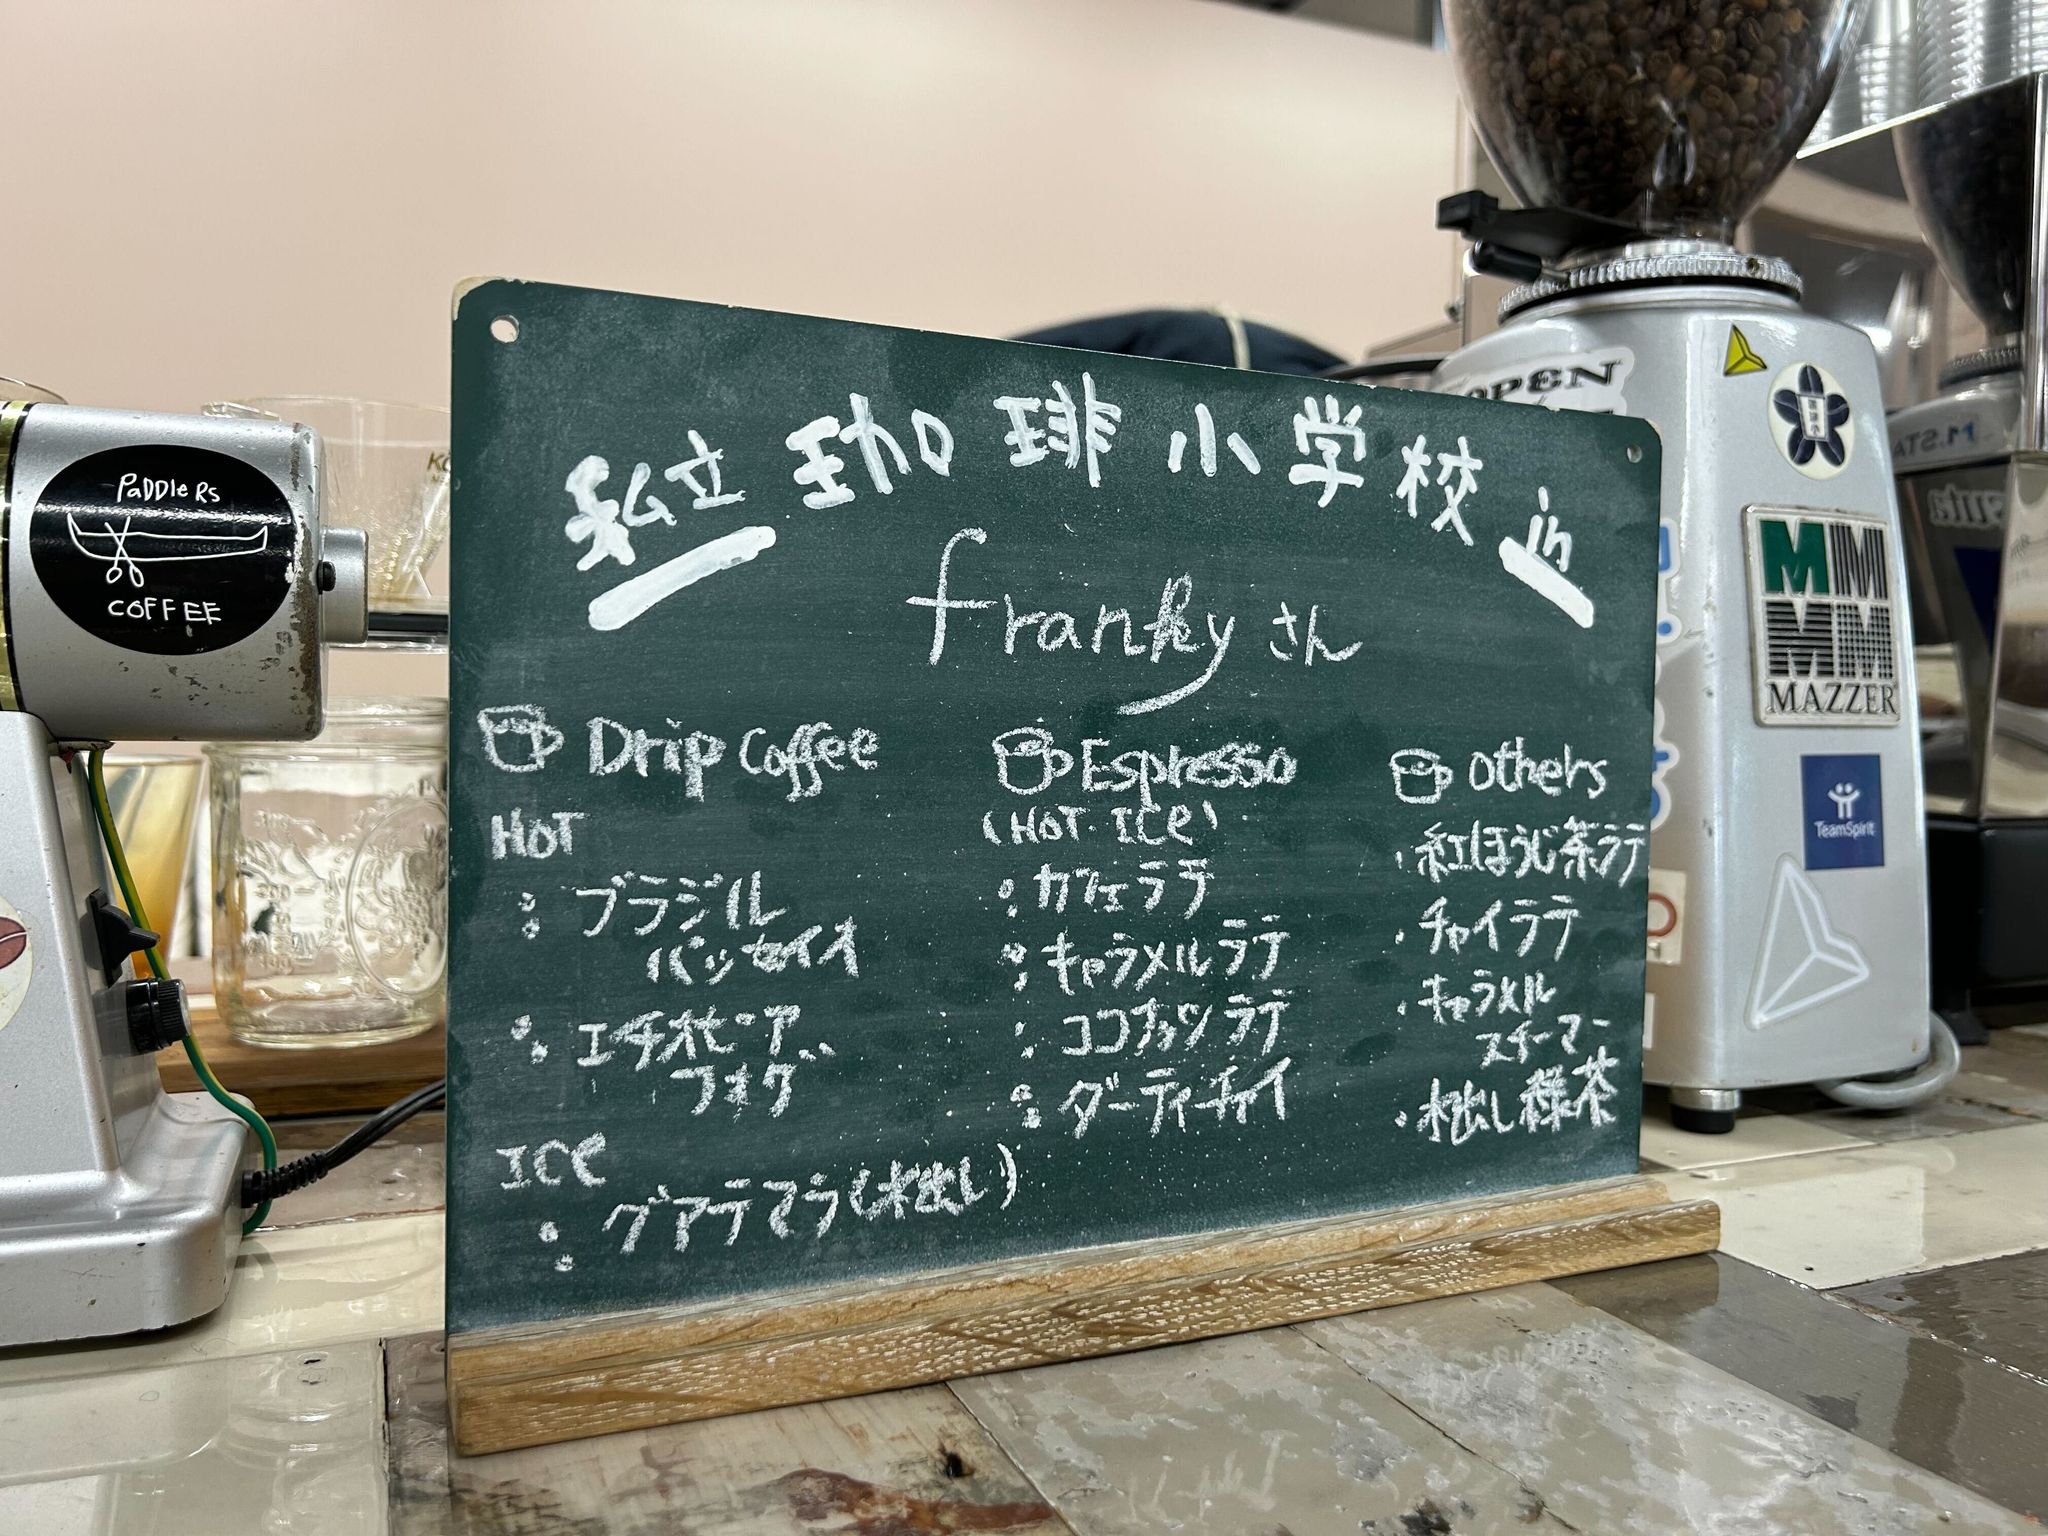 私立珈琲小学校 in
frankyさん
Drip Coffee
HOT
・ブラジル
パッセイオ
・エチオピーア
フォグ
ICE
・グアテマラ(水出し)
Espresso
(HOT・ICE)
・カフェラテ
・キャラメルラテ
・ココナッツラテ
・ダーティーチャイ
Others
・紅ほうじ茶ラテ
・チャイラテ
・キャラメル
スチーマー
・水出し緑茶
PADDLERS
COFFEE
OPEN
MAZZER
TeamSpirit